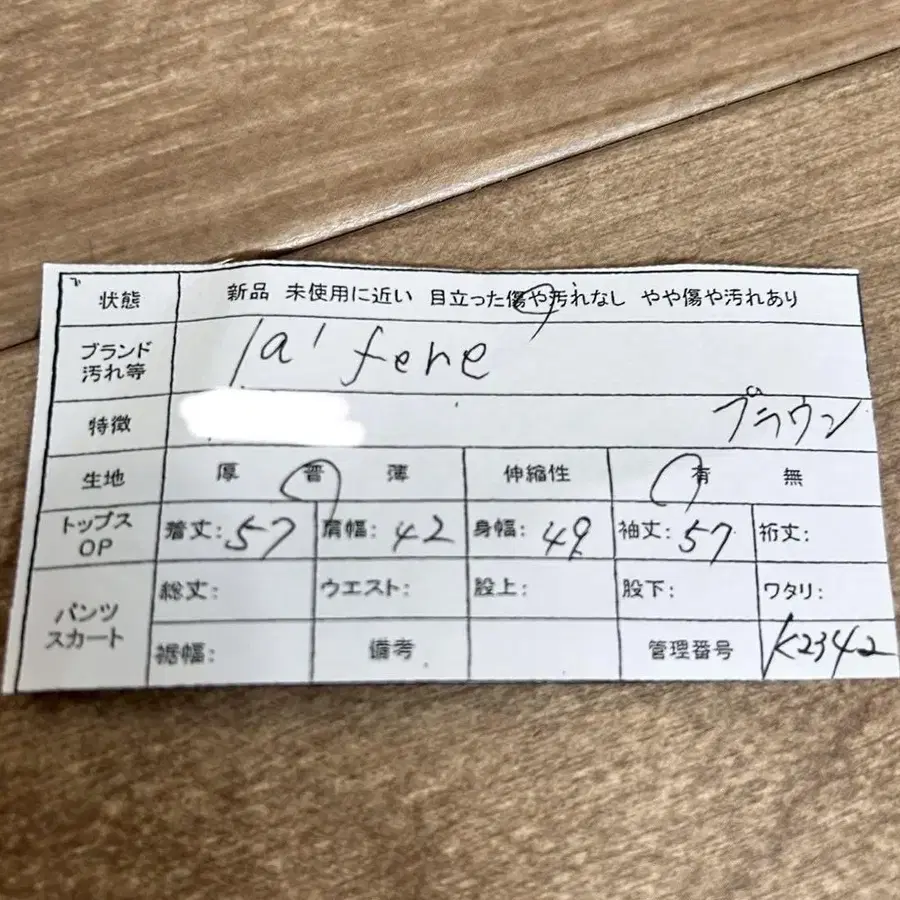 状態 新品 未使用に近い 目立った傷や汚れなし やや傷や汚れあり
ブランド 汚れ等 la' fene
特徴 ブラウン
生地 厚 普 薄 伸縮性 有 無
トップス OP 着丈: 57 肩幅: 42 身幅: 49 袖丈: 57 裄丈:
パンツ スカート 総丈: ウエスト: 股上: 股下: ワタリ:
裾幅: 備考 管理番号 K2342